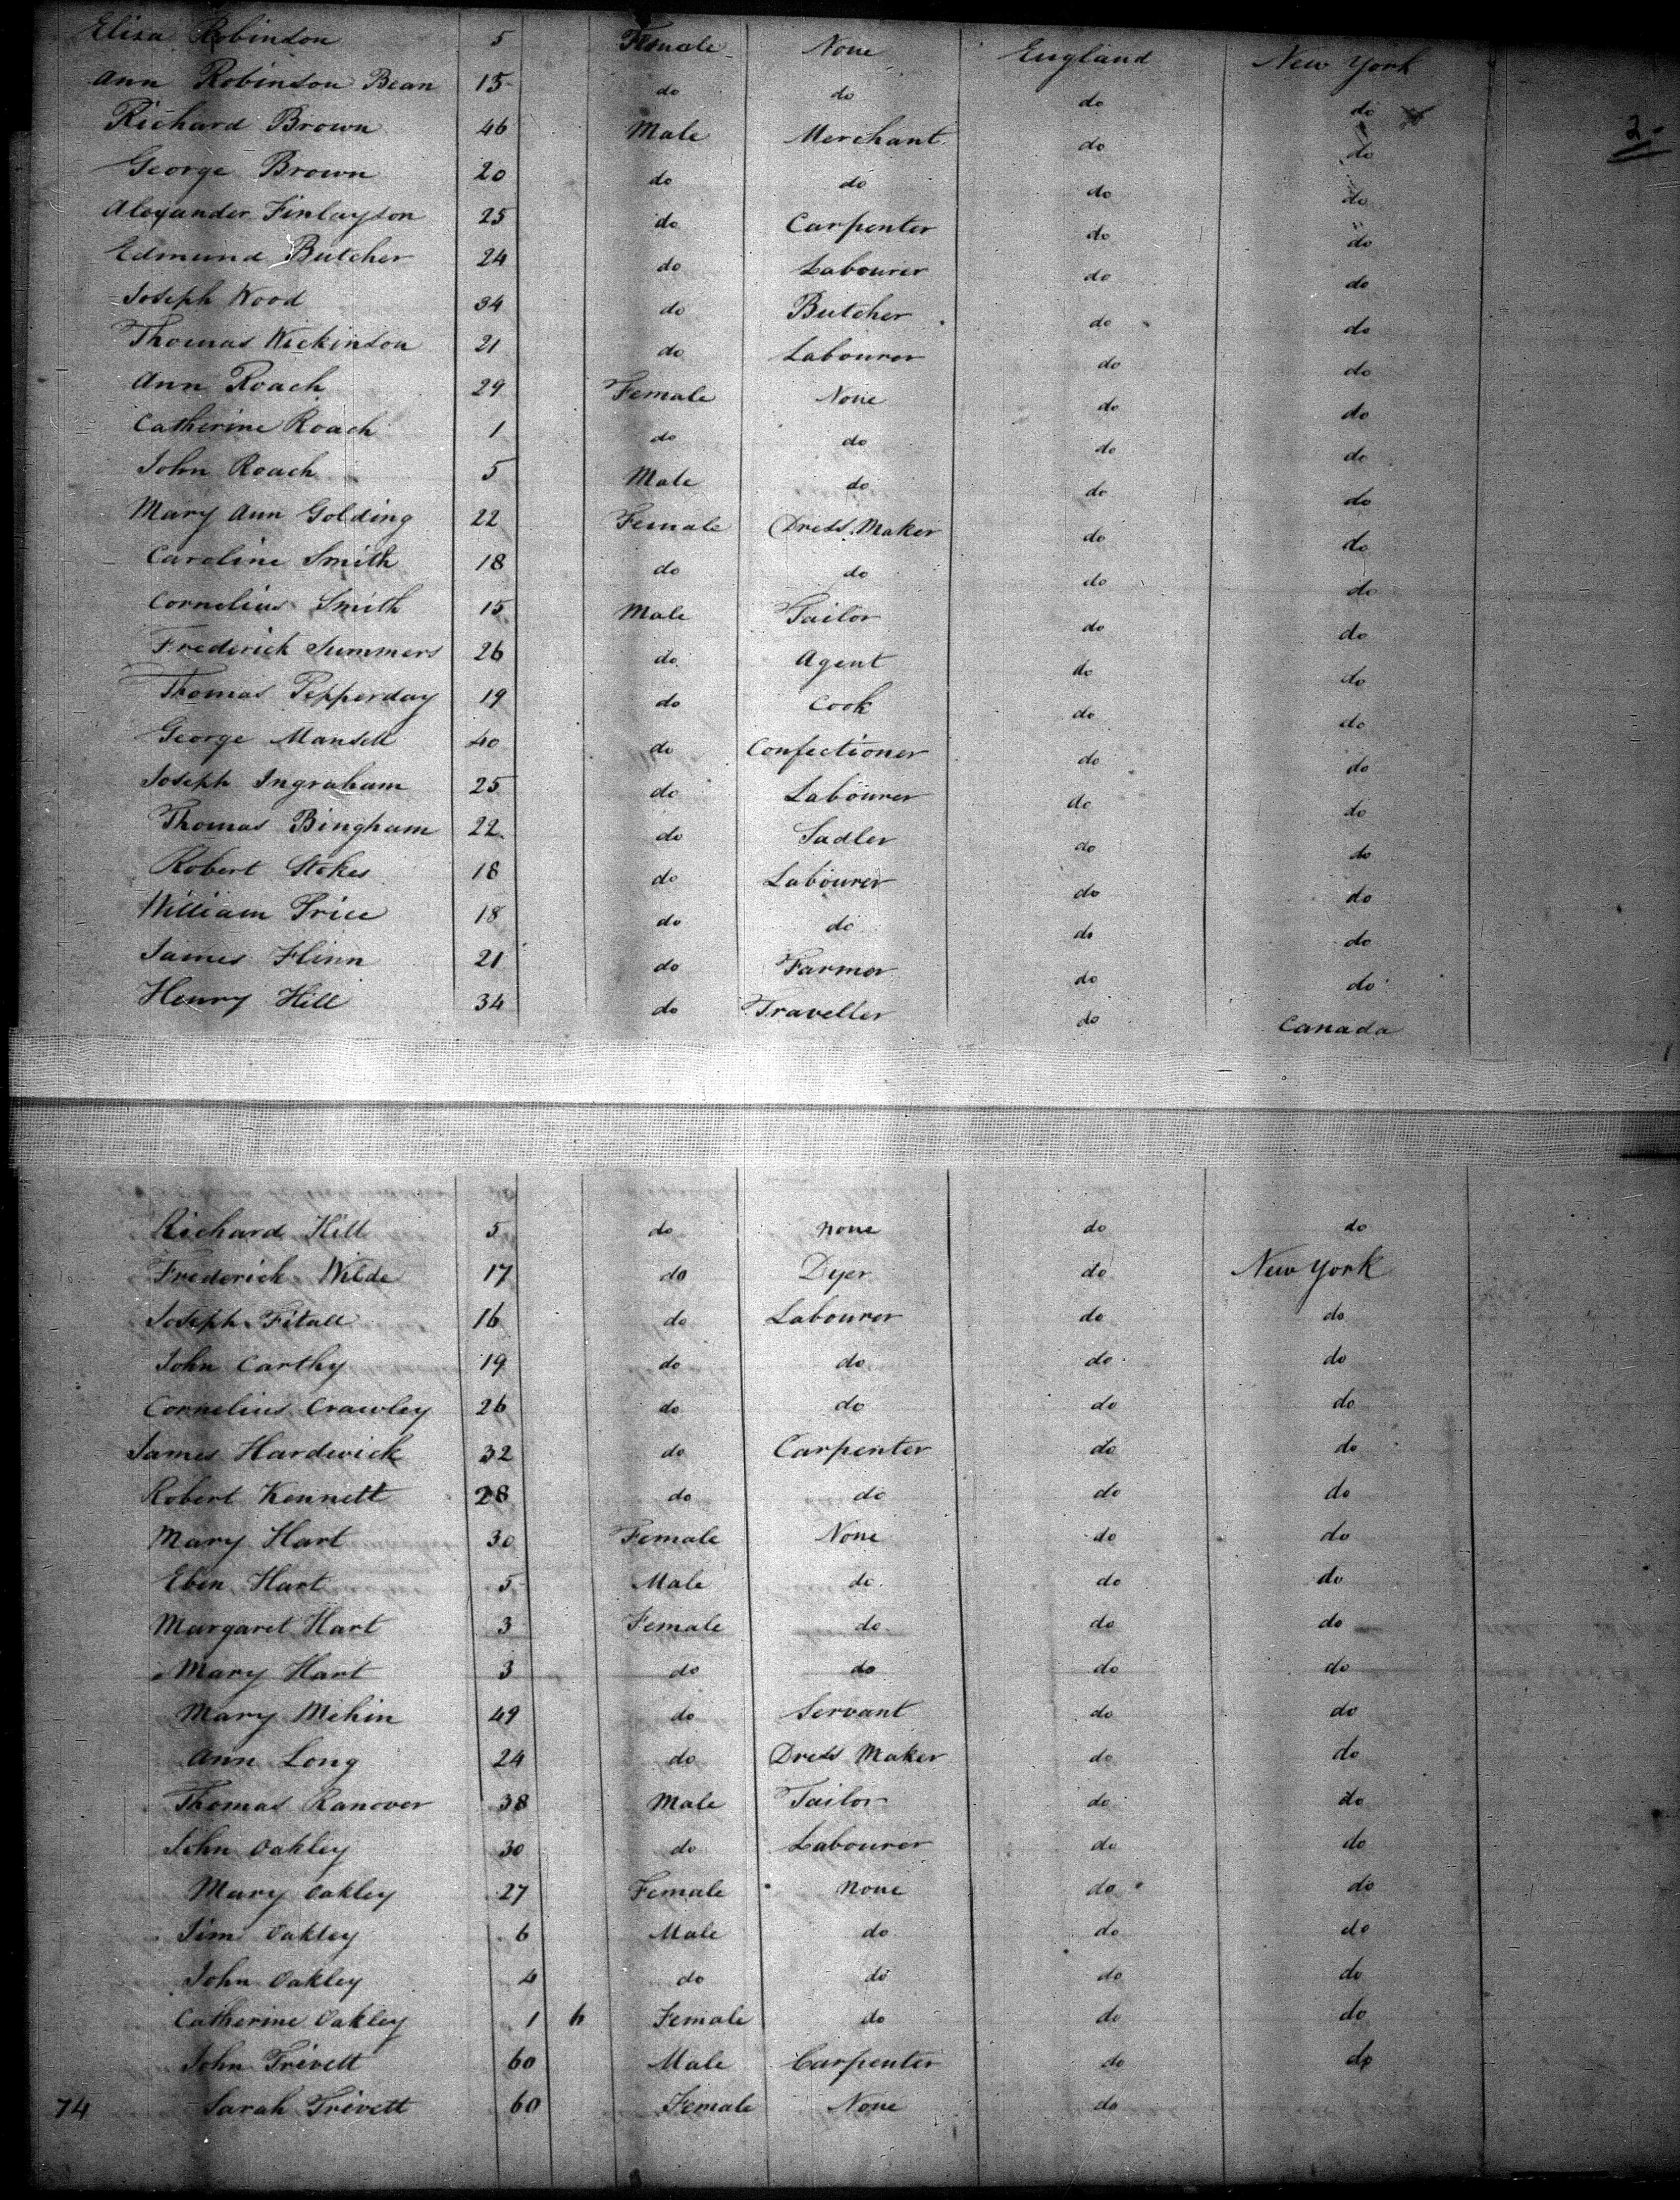 Eliza Robinson 5 Female None England New York
Ann Robinson Bean 15 do do do do
Richard Brown 46 Male Merchant do do 2
George Brown 20 do do do do
Alexander Finlayson 25 do Carpenter do do
Edmund Butcher 24 do Labourer do do
Joseph Wood 34 do Butcher do do
Thomas Wickinson 21 do Labourer do do
Ann Roach 29 Female None do do
Catherine Roach 1 do do do do
John Roach 5 Male do do do
Mary Ann Golding 22 Female Dress Maker do do
Caroline Smith 18 do do do do
Cornelius Smith 15 Male Tailor do do
Frederick Summers 26 do Agent do do
Thomas Pepperday 19 do Cook do do
George Mansell 40 do Confectioner do do
Joseph Ingraham 25 do Labourer do do
Thomas Bingham 22 do Sadler do do
Robert Stokes 18 do Labourer do do
William Price 18 do do do do
James Flinn 21 do Farmer do do
Henry Hill 34 do Traveller do Canada
Richard Hill 5 do none do do
Frederick Wilde 17 do Dyer do New York
Joseph Fitall 16 do Labourer do do
John Carthy 19 do do do do
Cornelius Crawley 26 do do do do
James Hardwick 32 do Carpenter do do
Robert Kennett 28 do do do do
Mary Hart 30 Female None do do
Eben Hart 5 Male do do do
Margaret Hart 3 Female do do do
Mary Hart 3 do do do do
Mary Mehin 49 do Servant do do
Ann Long 24 do Dress Maker do do
Thomas Ranover 38 Male Tailor do do
John Oakley 30 do Labourer do do
Mary Oakley 27 Female none do do
Jim Oakley 6 Male do do do
John Oakley 4 do do do do
Catherine Oakley 1 6 Female do do do
John Trivett 60 Male Carpenter do do
74 Sarah Trivett 60 Female None do